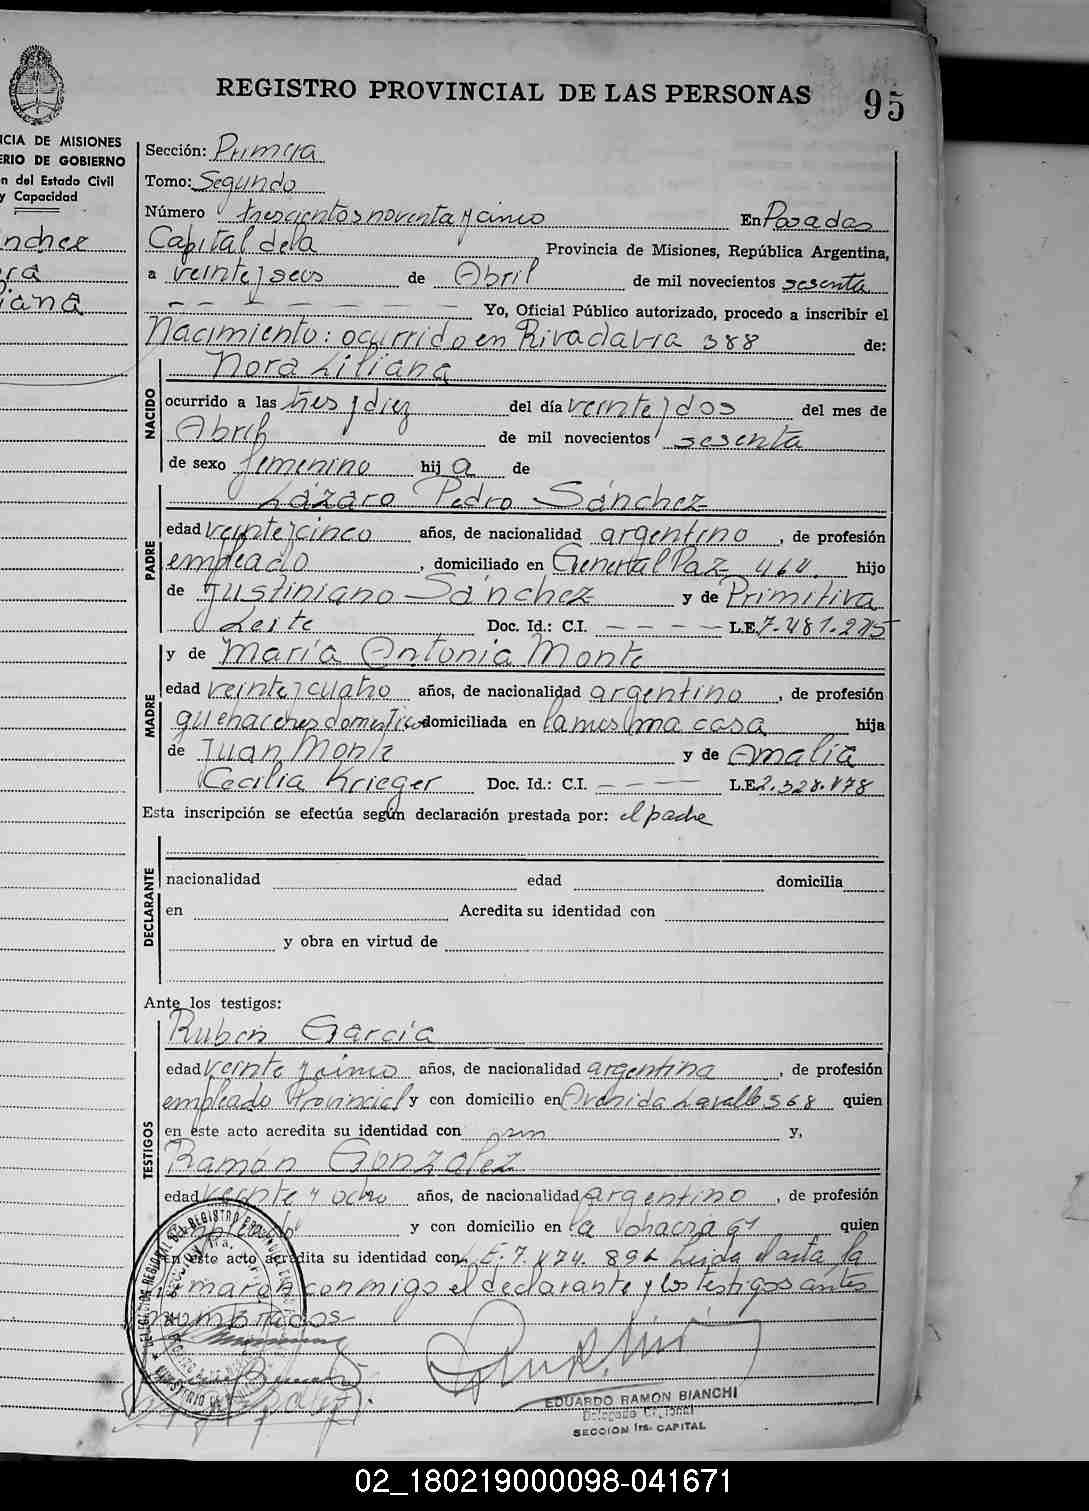 REGISTRO PROVINCIAL DE LAS PERSONAS
95
CIA DE MISIONES
ERIO DE GOBIERNO
n del Estado Civil
y Capacidad
nchez
ra
iana
Sección: Primera
Tomo: Segundo
Número trescientos noventa y cinco En Posadas
Capital de la Provincia de Misiones, República Argentina,
a veinte y seis de Abril de mil novecientos sesenta
— — — — — — — Yo, Oficial Público autorizado, procedo a inscribir el
Nacimiento: ocurrido en Rivadavia 388 de:
NACIDO
Nora Liliana
ocurrido a las tres y diez del día veinte y dos del mes de
Abril de mil novecientos sesenta
de sexo femenino hij a de
PADRE
Lázaro Pedro Sánchez
edad veinte y cinco años, de nacionalidad argentino, de profesión
empleado, domiciliado en General Paz 464. hijo
de Justiniano Sánchez y de Primitiva
Leite Doc. Id.: C.I. — — — — L.E. 7.481.275
MADRE
y de María Antonia Monte
edad veinte y cuatro años, de nacionalidad argentino, de profesión
quehaceres domestico domiciliada en la misma casa hija
de Juan Monte y de Amalia
Cecilia Krieger Doc. Id.: C.I. — — — L.E. 2.328.178
Esta inscripción se efectúa según declaración prestada por: el padre
DECLARANTE
nacionalidad edad domicilia
en Acredita su identidad con
y obra en virtud de
Ante los testigos:
TESTIGOS
Ruben García
edad veinte y cinco años, de nacionalidad argentina, de profesión
empleado Provincial y con domicilio en Avenida Lavalle 568 quien
en este acto acredita su identidad con y,
Ramón González
edad veinte y ocho años, de nacionalidad argentino, de profesión
empleado y con domicilio en la chacra 61 quien
en este acto acredita su identidad con L.E. 7.474.896 Leida el acta la
firmaron conmigo el declarante y los testigos antes
nombrados
EDUARDO RAMON BIANCHI
SECCION 1ra. CAPITAL
02_180219000098-041671